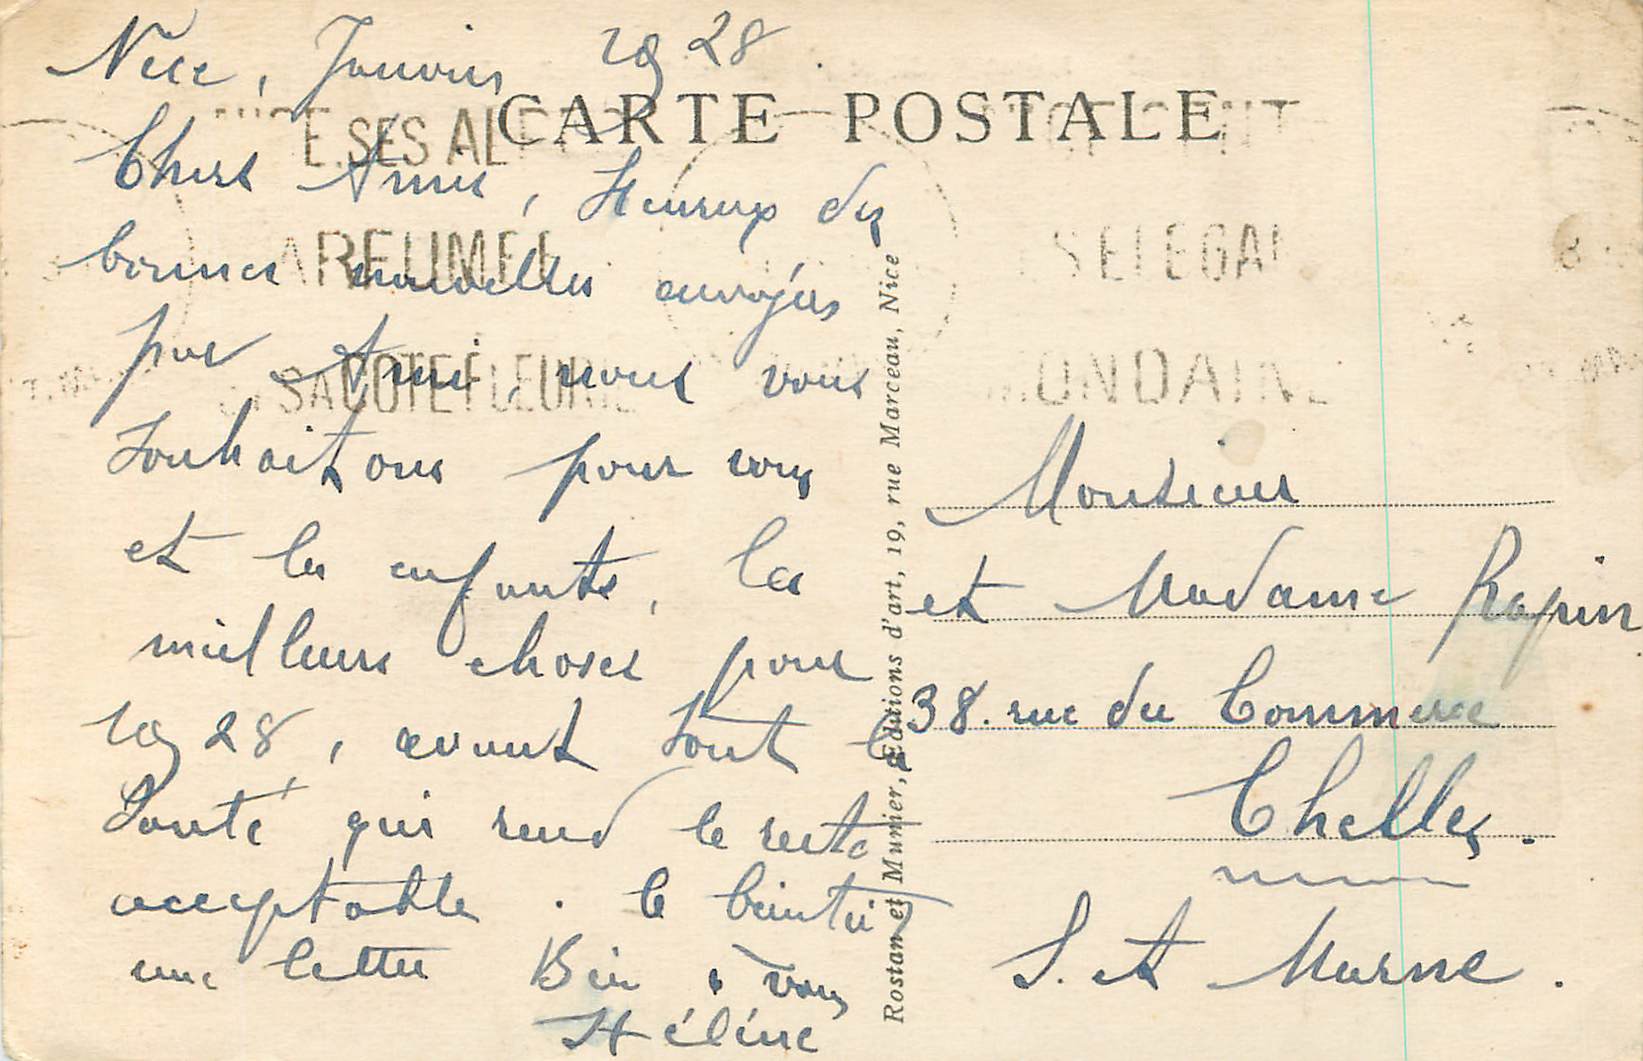 Nice, Janvier 1928.
CARTE POSTALE
Chers Amis, Heureux des
bonnes nouvelles envoyées
par Ami, nous vous
souhaitons pour vous
et les enfants, les
meilleurs choses pour
1928, avant tout la
Santé qui rend le reste
acceptable. à bientôt
une lettre Bien à vous
Hélène
Rostan et Munier, Editions d'art, 19, rue Marceau, Nice
E. SES AL
ARFUME
SA COTE FLEURIE
SELEGAN
MONDAINE
Monsieur
et Madame Rapin
38. rue du Commerce
Chelles.
S. et Marne.